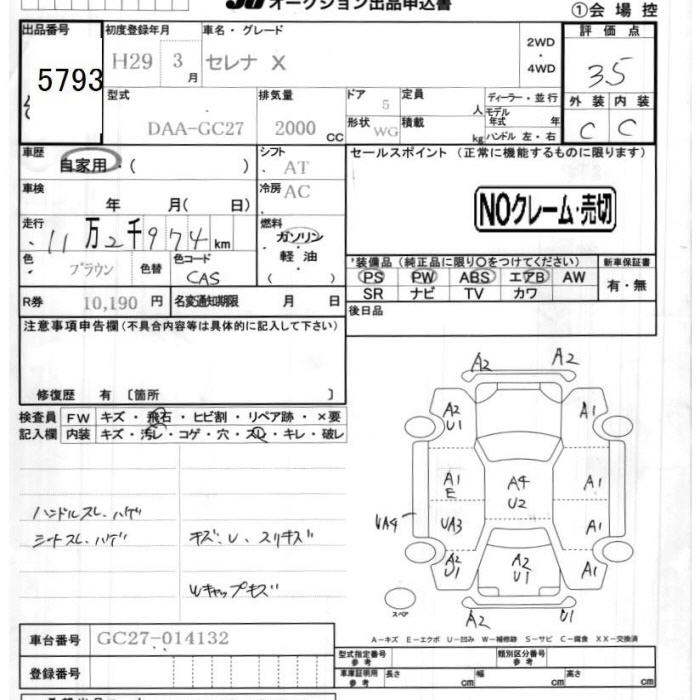 オークション出品申込書
①会場控
出品番号
5793
初度登録年月
H29 3月
車名・グレード
セレナ X
2WD
・
4WD
評価点
3.5
型式
DAA-GC27
排気量
2000 CC
ドア 5
定員 人
形状 WG
積載 kg
ディーラー・並行
モデル年式 年
ハンドル 左・右
外装 内装
C C
車歴
自家用・( )
シフト
AT
セールスポイント (正常に機能するものに限ります)
NOクレーム・売切
車検
年 月(日)
冷房
AC
走行
11万2千974km
燃料
ガソリン
軽油
( )
色
ブラウン
色替
色コード
CAS
*装備品 (純正品に限り○をつけてください)
PS PW ABS エアB AW
SR ナビ TV カワ
新車保証書
有・無
R券 10,190 円
名変通知期限 月 日
後日品
注意事項申告欄(不具合内容等は具体的に記入して下さい)
修復歴 有〔箇所 〕
検査員記入欄
FW キズ・飛石・ヒビ割・リペア跡・×要
内装 キズ・汚レ・コゲ・穴・スレ・キレ・破レ
ハンドルスレ、ハゲ
シートスレ、ハゲ
キズ、U、スリキズ
Wキャップキズ
A2 A2
A2 U1
A1
A1 E
A4 U2
A1
UA4
UA3
A1
A2 U1
A2 U1
A1
A2
U1
スペア
A-キズ E-エクボ U-凹み W-補修跡 S-サビ C-腐食 XX-交換済
車台番号 GC27-014132
登録番号
型式指定番号 参考
類別区分番号 参考
車庫証明用 参考
長さ cm
幅 cm
高さ cm